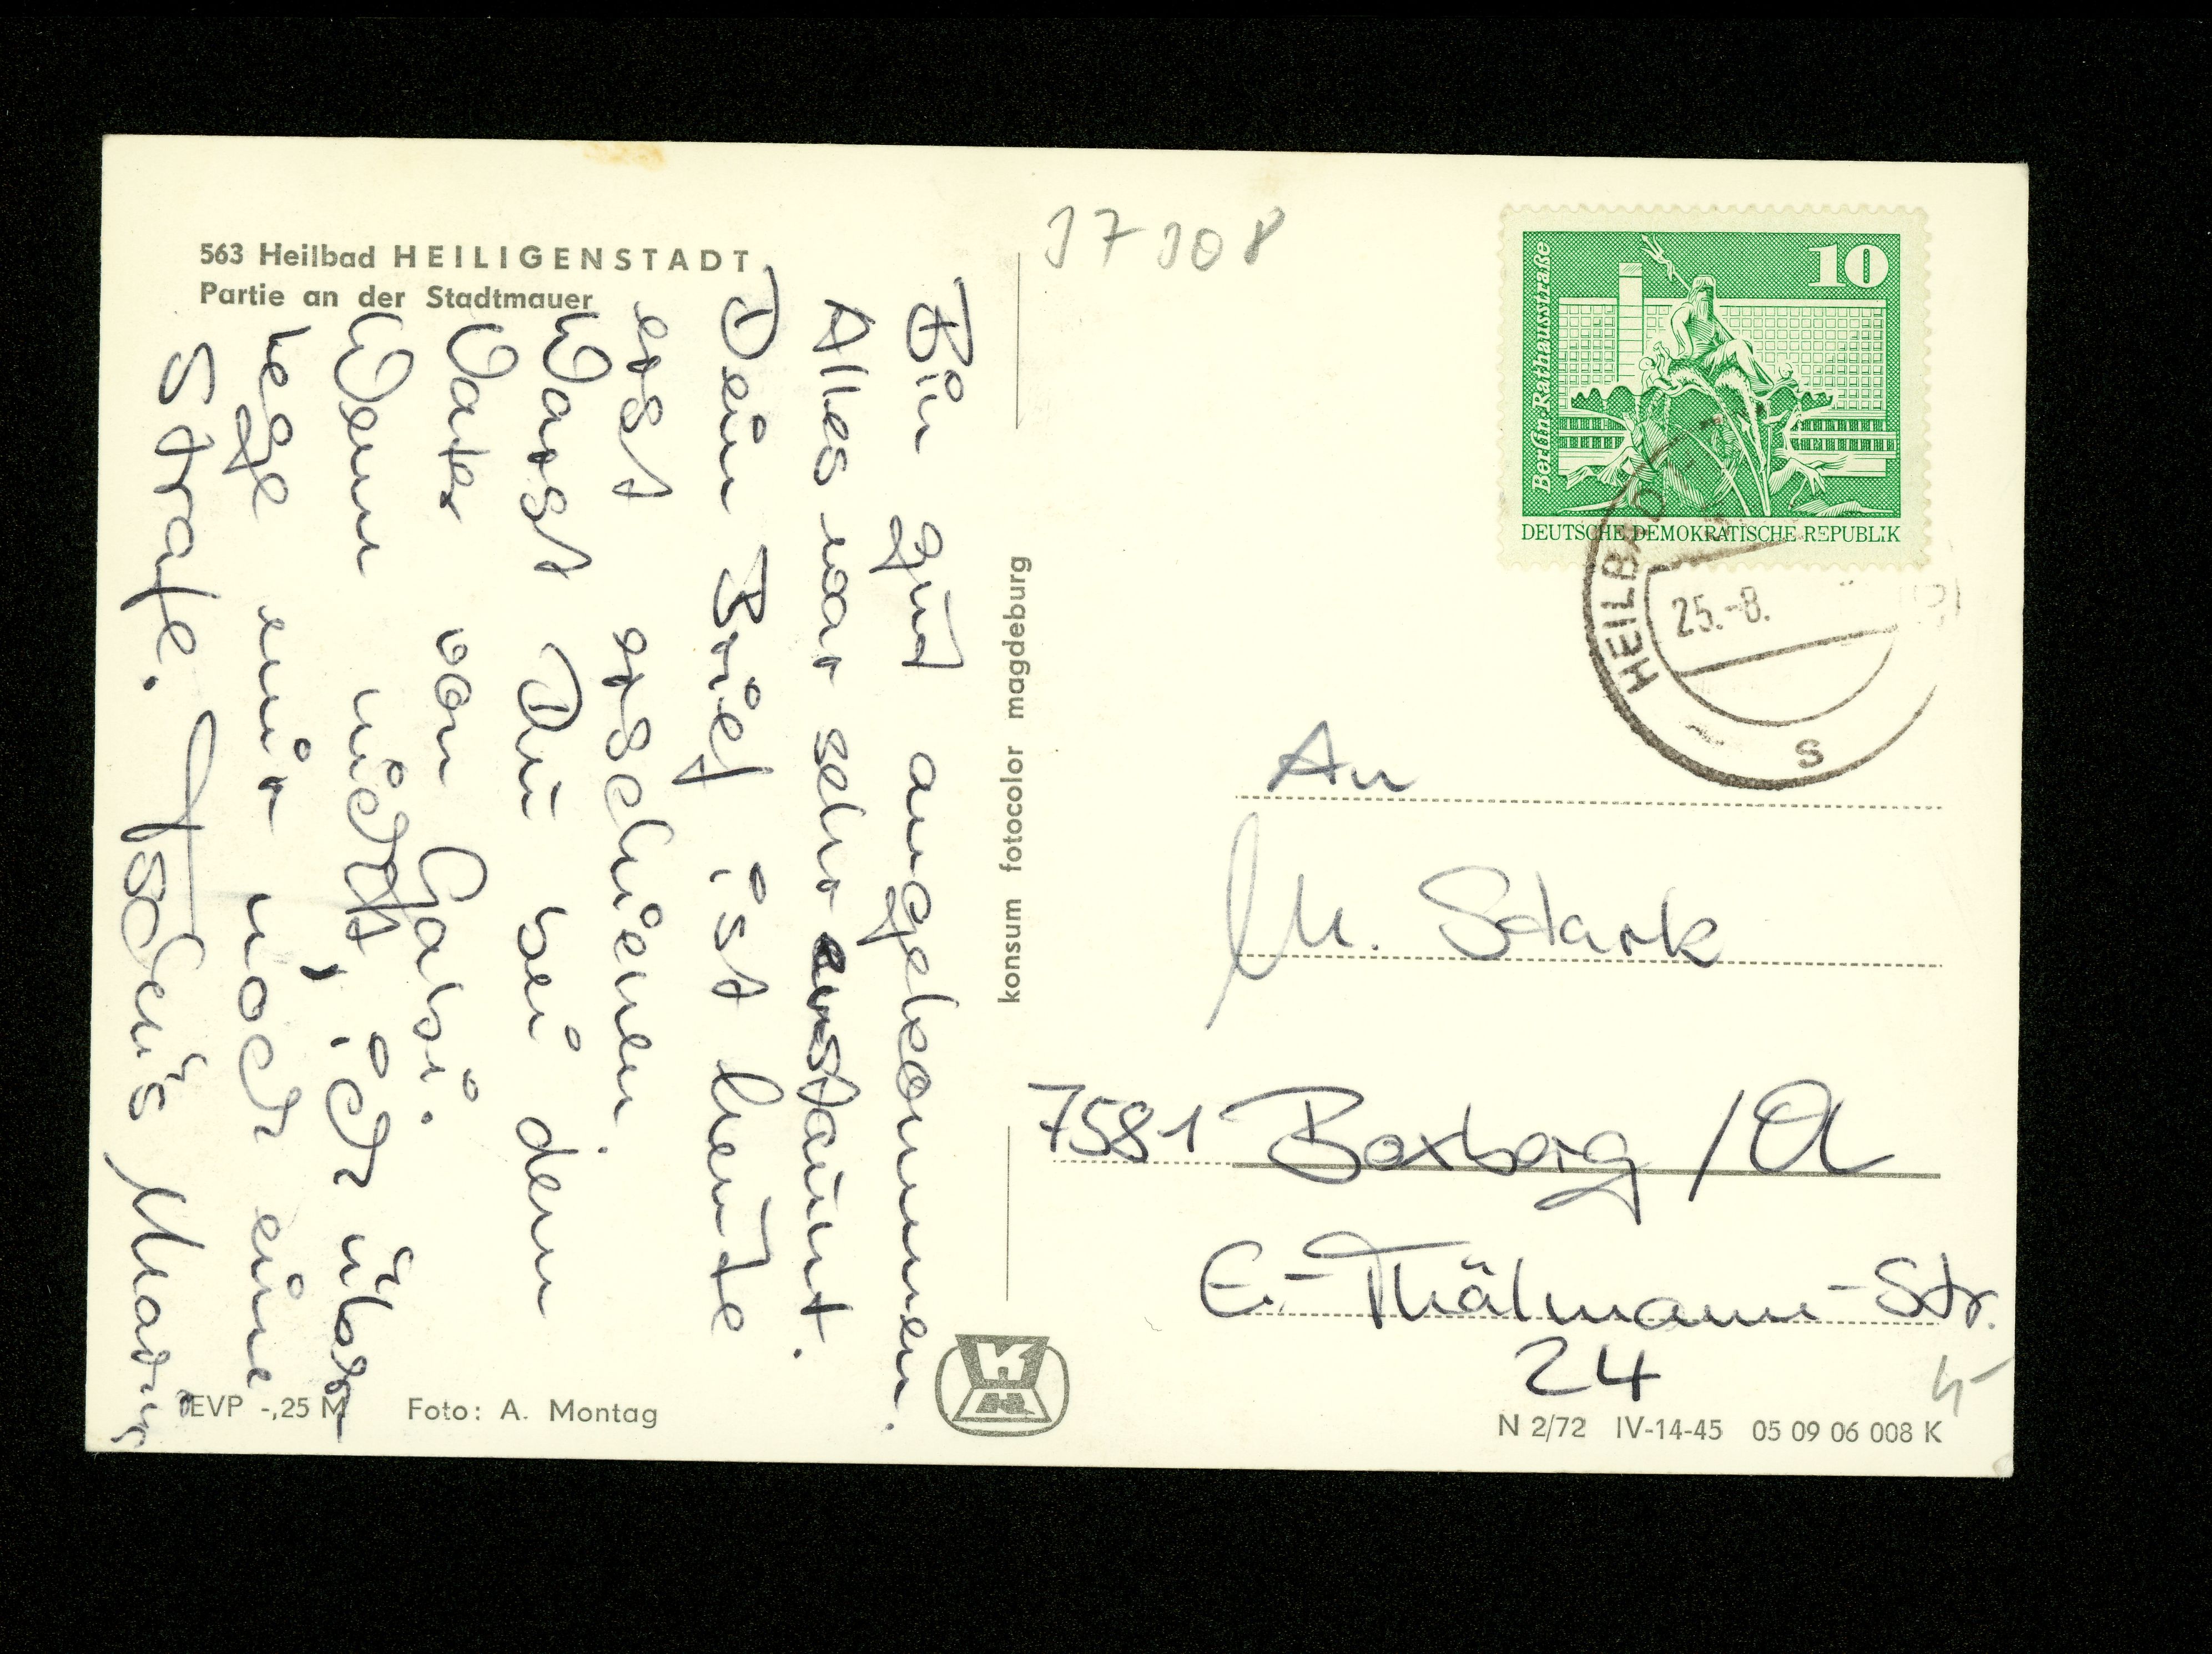 563 Heilbad HEILIGENSTADT
Partie an der Stadtmauer
Bin gut angekommen.
Alles war sehr erstaunt.
Dein Brief ist heute
erst erschienen.
Warst Du bei dem
Vater von Gabi.
Wenn nicht, ich über
lege mir noch eine
Strafe. Tschüs
EVP -,25 M
Foto: A. Montag
konsum fotocolor magdeburg
37308
10
Berlin·Rathausstraße
DEUTSCHE DEMOKRATISCHE REPUBLIK
HEILBAD
25.-8.
s
An
M. Stark
7581 Boxberg /OL
E.-Thälmann-Str.
24
N 2/72 IV-14-45 05 09 06 008 K